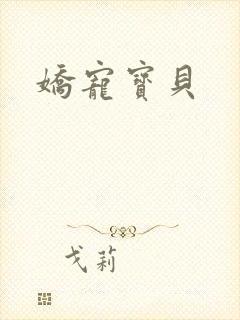 嬌寵寶貝
戈莉